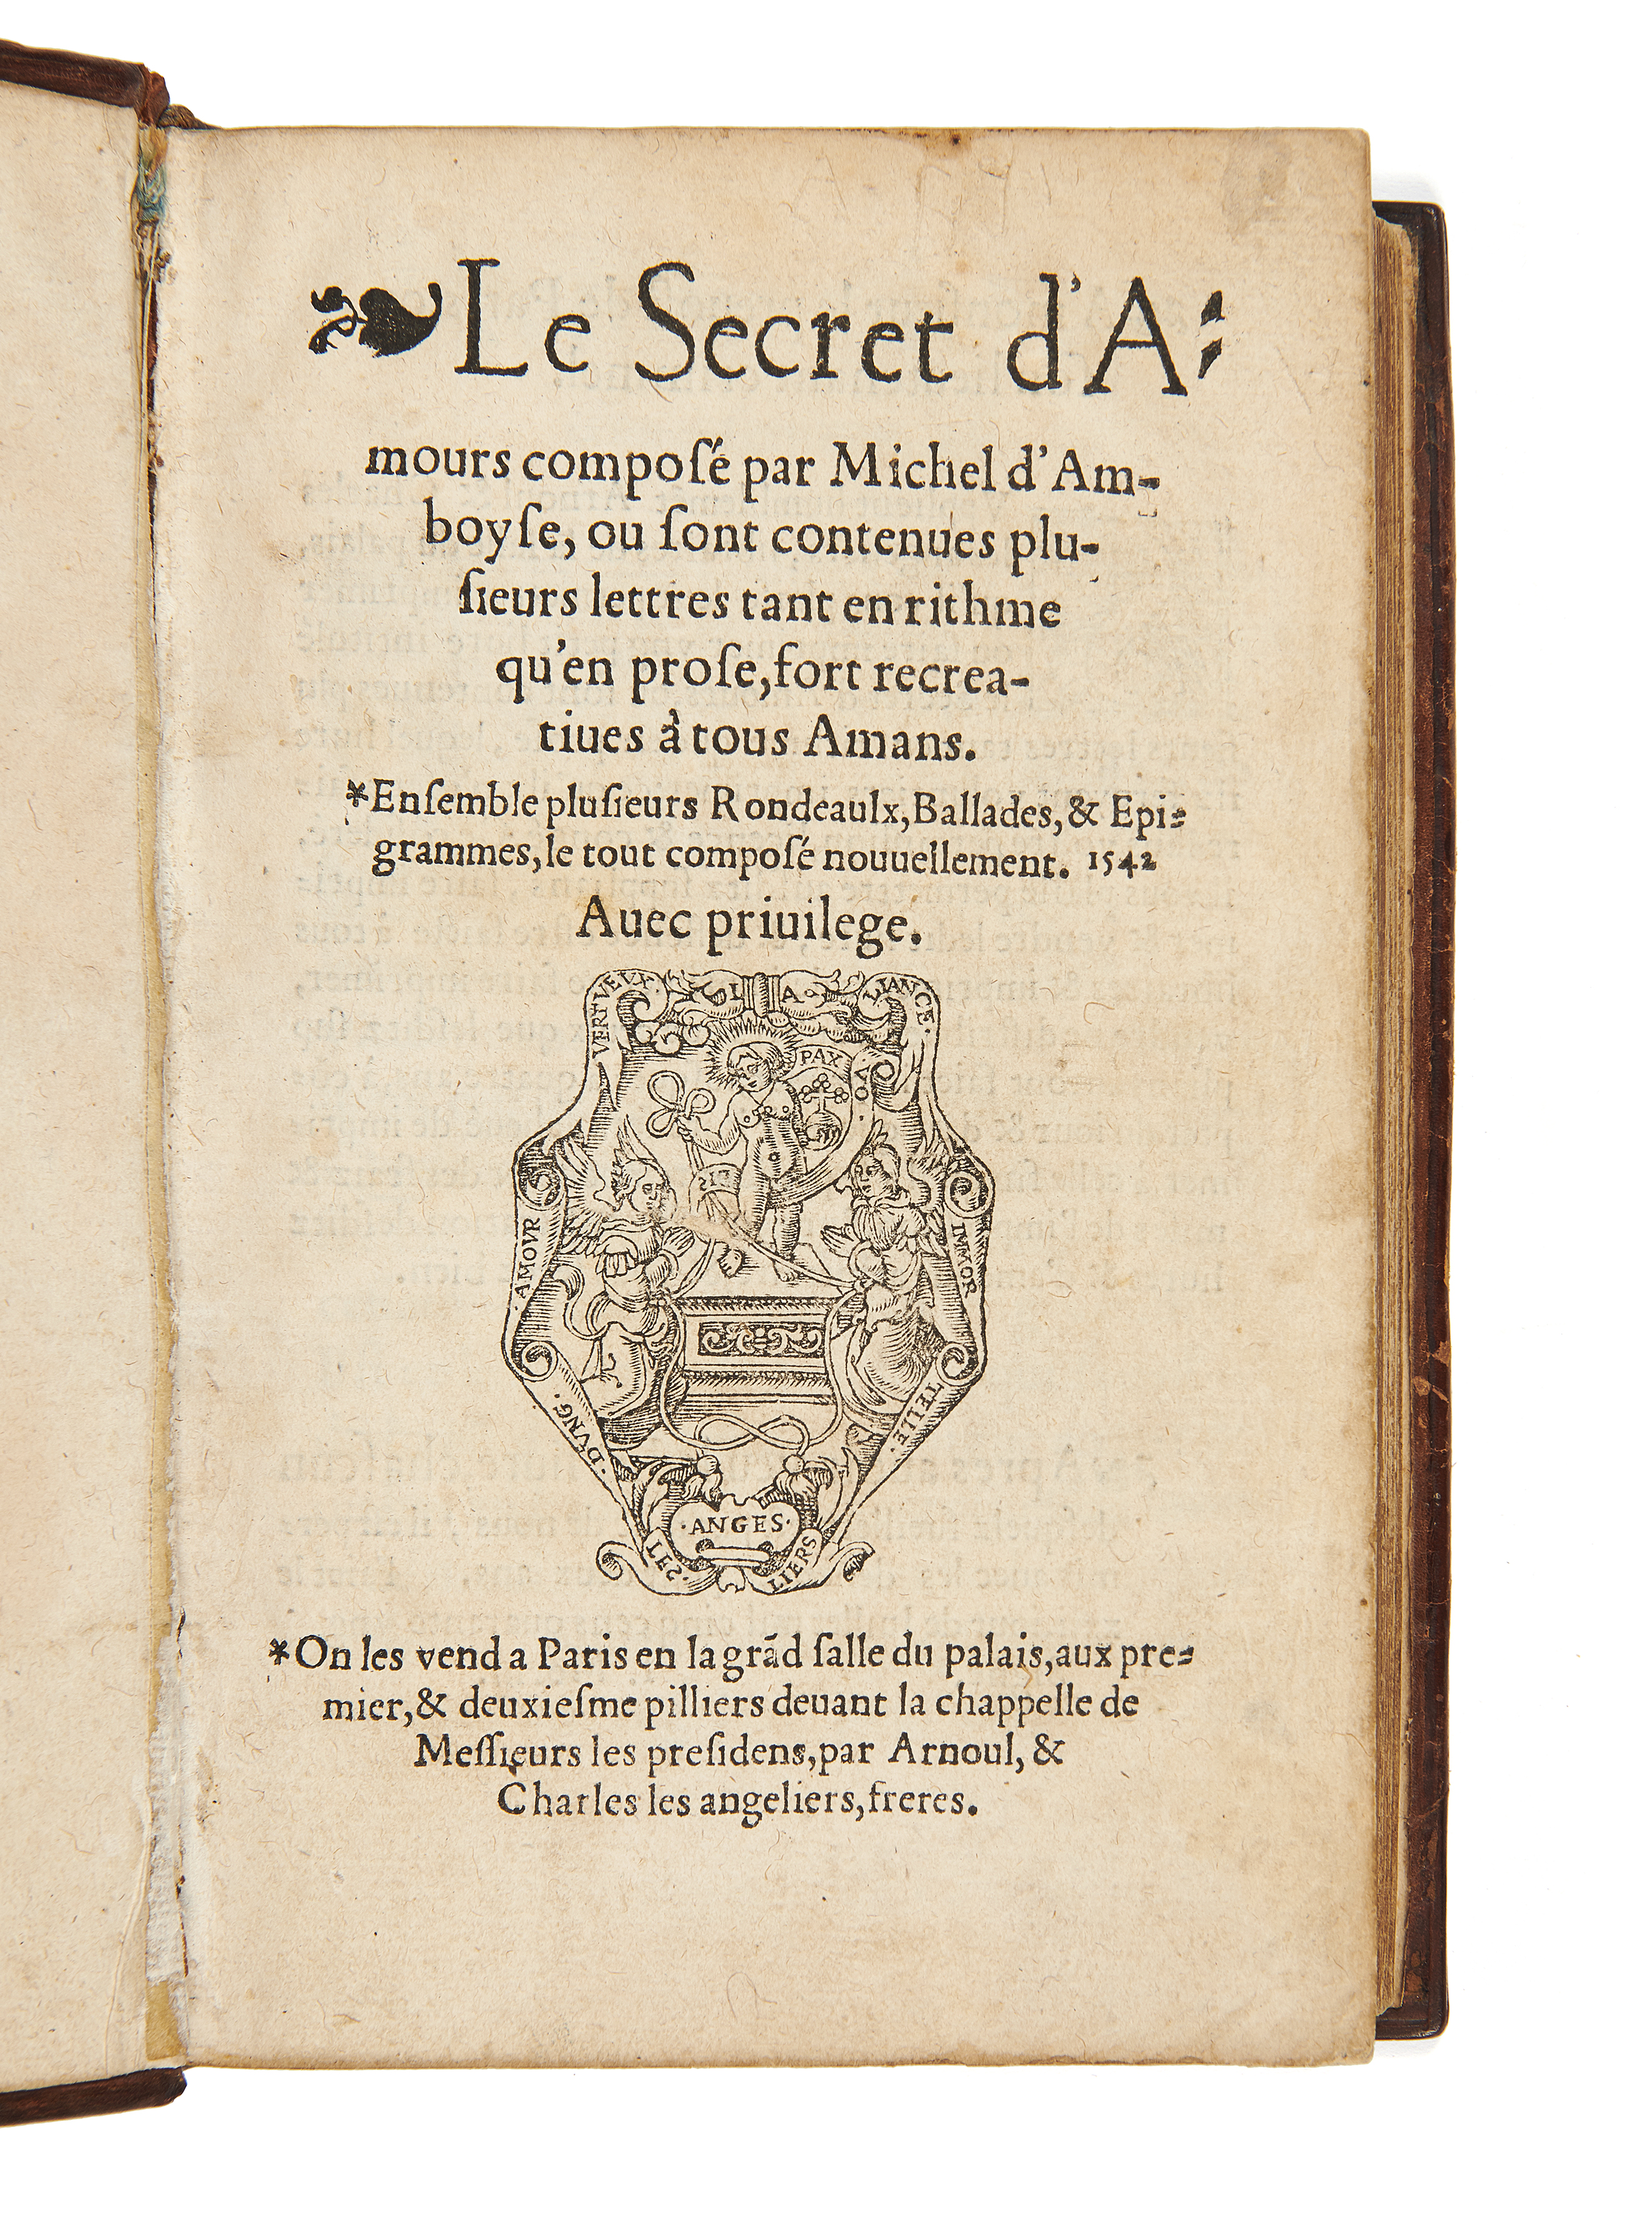 ❧Le Secret d'A⸗
mours composé par Michel d'Am-
boyse, ou sont contenues plu-
sieurs lettres tant en rithme
qu'en prose, fort recrea-
tiues à tous Amans.
*Ensemble plusieurs Rondeaulx, Ballades, & Epi⸗
grammes, le tout composé nouuellement. 1542
Auec priuilege.
VERTVEVX.
L A
LIANCE.
PAX
VO
.AMOVR
IMMOR
.DVNG.
TELLE.
.ANGES.
LES.
LIERS
*On les vend a Paris en la grãd salle du palais, aux pre⸗
mier, & deuxiesme pilliers deuant la chappelle de
Messieurs les presidens, par Arnoul, &
Charles les angeliers, freres.